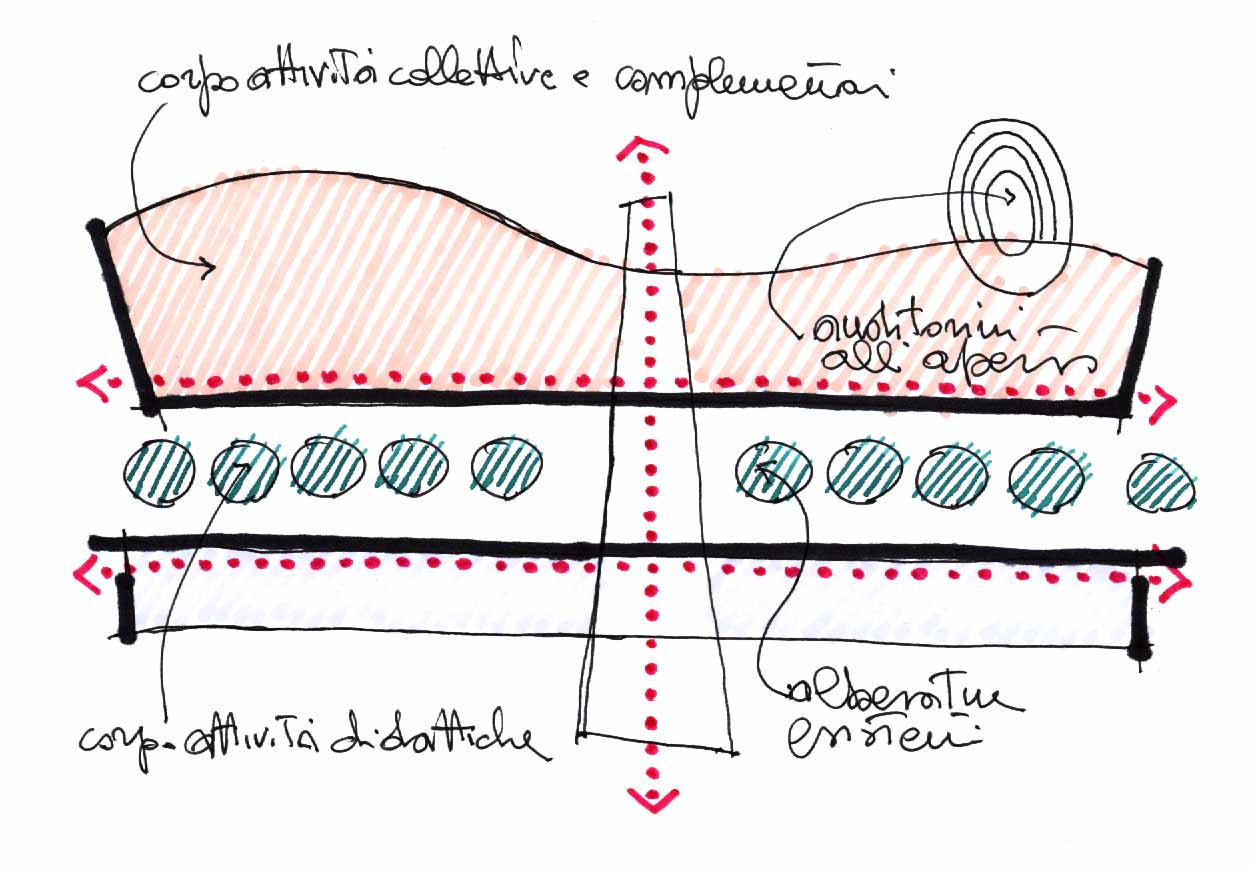 corpo attività collettive e complementari
auditorium
all'aperto
corpo attività didattiche
alberature
esistenti